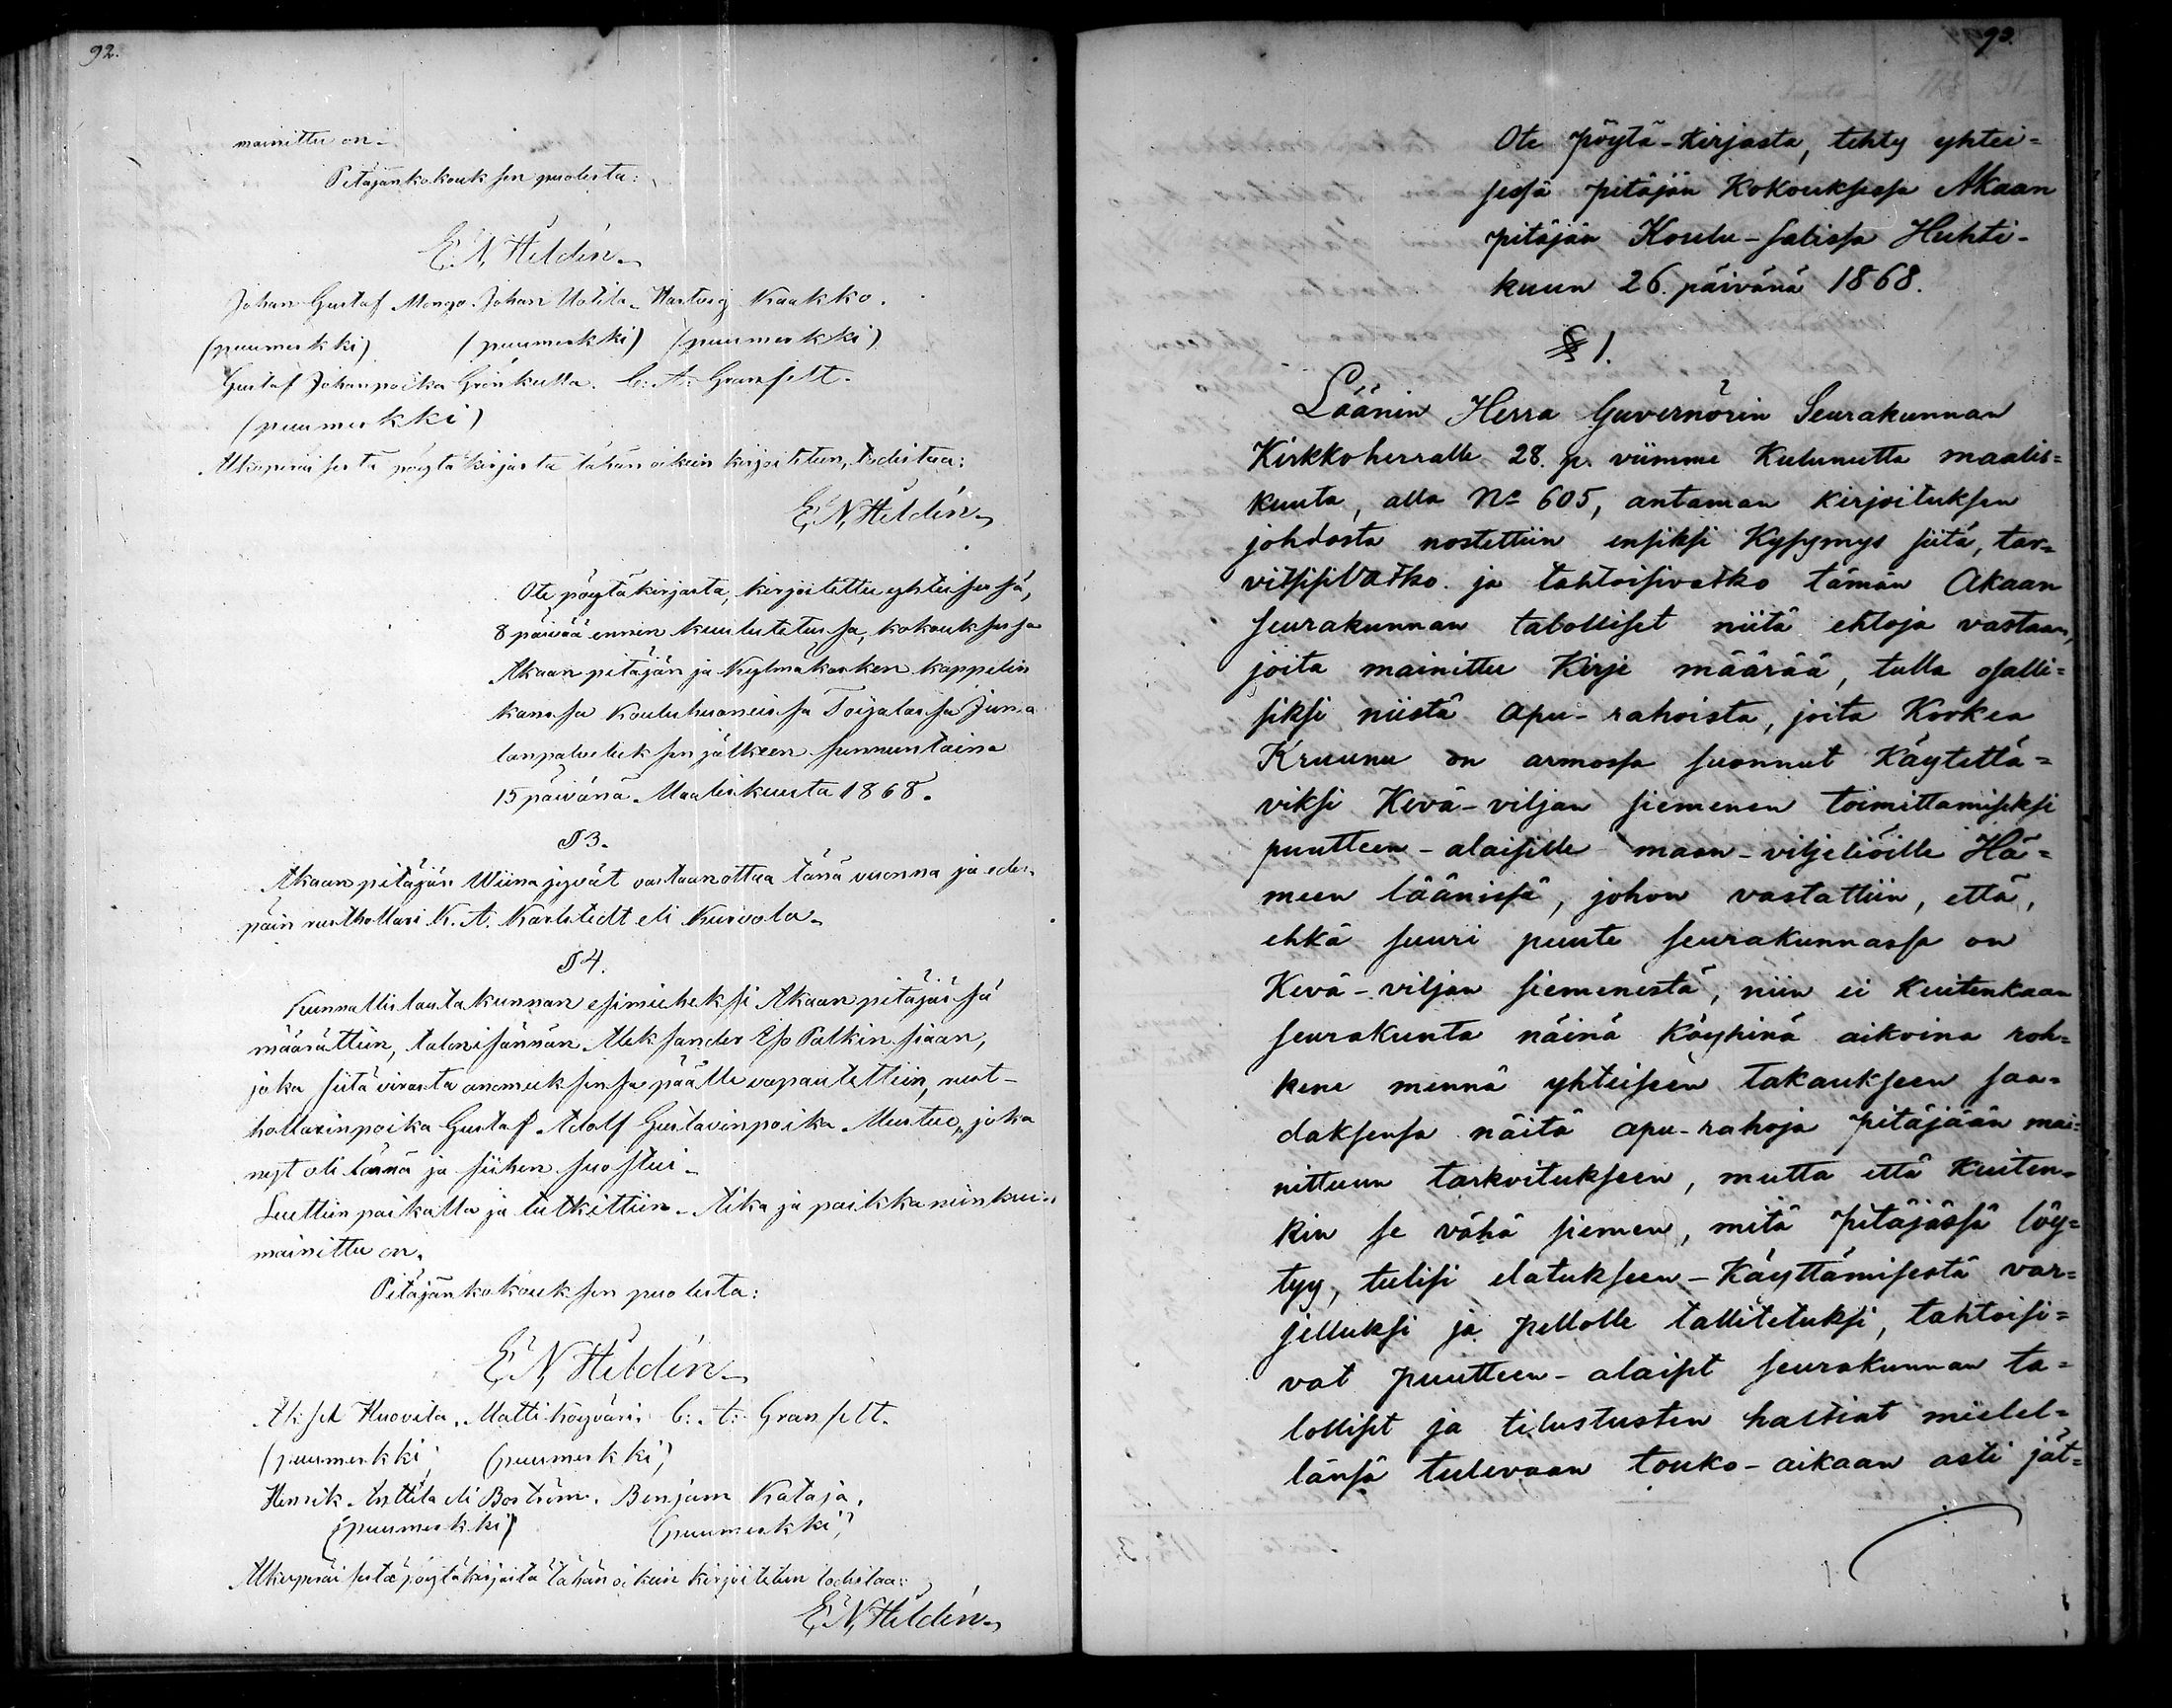 92.
mainittu on.
Pitäjänkokouksen puolesta:
E. N. Hildén.
Johan Gustaf Mongo. Johan Uotila. Hartvig Kaakko.
(puumerkki) (puumerkki) (puumerkki)
Gustaf Johanpoika Grönkulla. C: A: Granfelt.
(puumerkki)
Alkuperäisestä pöytäkirjasta tähän oikein kirjoitetun, todistaa:
E. N. Hildén.
Ote pöytäkirjasta, kirjoitettu yhteisessä,
8 päivää ennen kuulutetussa, kokouksessa
Akaan pitäjän ja Kylmäkosken kappelin
kanssa Kouluhuoneissa Toijalassa Juma
lanpalveluksen jälkeen sunnuntaina
15 päivänä Maaliskuuta 1868.
§ 3.
Akaan pitäjän Wiinajyvät vastaanottaa tänä vuonna ja edes-
päin rusthollari K. A. Karlstedt eli Kurvola.
§ 4.
Kunnallislautakunnan esimieheksi Akaan pitäjässä
määrättiin, talonisännän Aleksander Yso Palkin siaan,
joka siitä virasta anomuksensa päälle vapautettiin, rust-
hollarinpoika Gustaf Adolf Gustavinpoika Mustue, joka
nyt oli läsnä ja siihen suostui.
Luettiin paikalla ja tutkittiin. Aika ja paikka niinkuin
mainittu on.
Pitäjänkokouksen puolesta:
E. N. Hildén.
Aksel Huovila. Matti Köyväri. C: A: Granfelt.
(puumerkki) (puumerkki)
Henrik Anttila eli Boström. Benjam Kataja.
(puumerkki) (puumerkki)
Alkuperäisestä pöytäkirjasta tähän oikein kirjoitetun todistaa:
E. N. Hildén.
93.
Ote pöytä-kirjasta, tehty yhtei=
sessä pitäjän Kokouksessa Akaan
pitäjän Koulu-salissa Huhti-
kuun 26. päivänä 1868.
§ 1.
Läänin Herra Guvernörin Seurakunnan
Kirkkoherralle 28. p. viimme Kulunutta maalis=
kuuta, alla No 605, antaman kirjoituksen
johdosta nostettiin ensiksi Kysymys siitä, tar=
vitsisivatko ja tahtoisivatko tämän Akaan
seurakunnan talolliset niitä ehtoja vastaan,
joita mainittu Kirje määrää, tulla osalli=
siksi niistä apu-rahoista, joita Korkea
Kruunu on armossa suonnut Käytettä=
viksi Kevä-viljan siemenen toimittamiseksi
puutteen-alaisille maan-viljeliöille Hä=
meen läänissä, johon vastattiin, että,
ehkä suuri puute seurakunnassa on
Kevä-viljan siemenestä, niin ei kuitenkaan
seurakunta näinä köyhinä aikoina roh=
kene mennä yhteiseen takaukseen saa=
daksensa näitä apu-rahoja pitäjään mai=
nittuun tarkoitukseen, mutta että kuiten=
kin se vähä siemen, mitä pitäjässä löy=
tyy, tulisi elatukseen-Käyttämisestä var=
jelluksi ja pellolle tallitetuksi, tahtoisi=
vat puutteen-alaiset seurakunnan ta=
lolliset ja tilustusten haltiat mielel=
länsä tulevaan touko-aikaan asti jät=